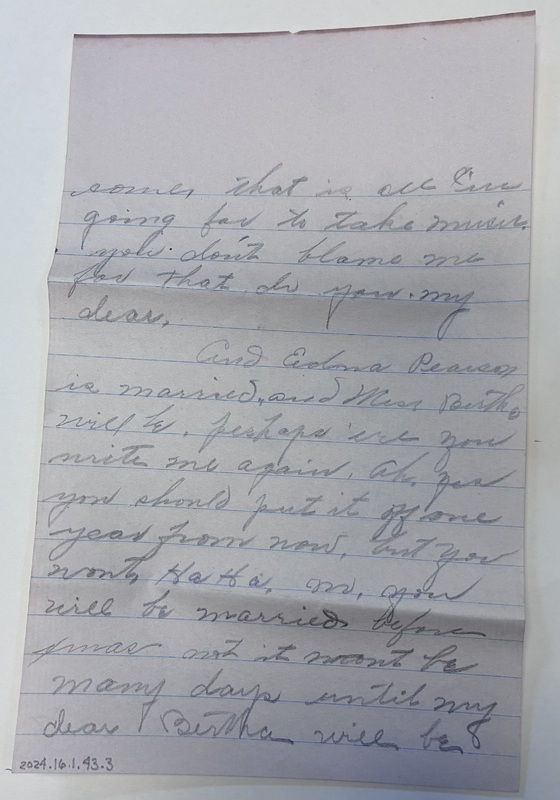 some, that is all I'm
going for to take music.
you don't blame me
for that do you. my
dear,
And Edna Pearson
is married, and Miss Bertha
will be, perhaps ere you
write me again. Ah, yes
you should put it off one
year from now, but you
wont, Ha Ha, no, you
will be married before
xmas not it wont be
many days until my
dear Bertha will be
2024.16.1.43.3